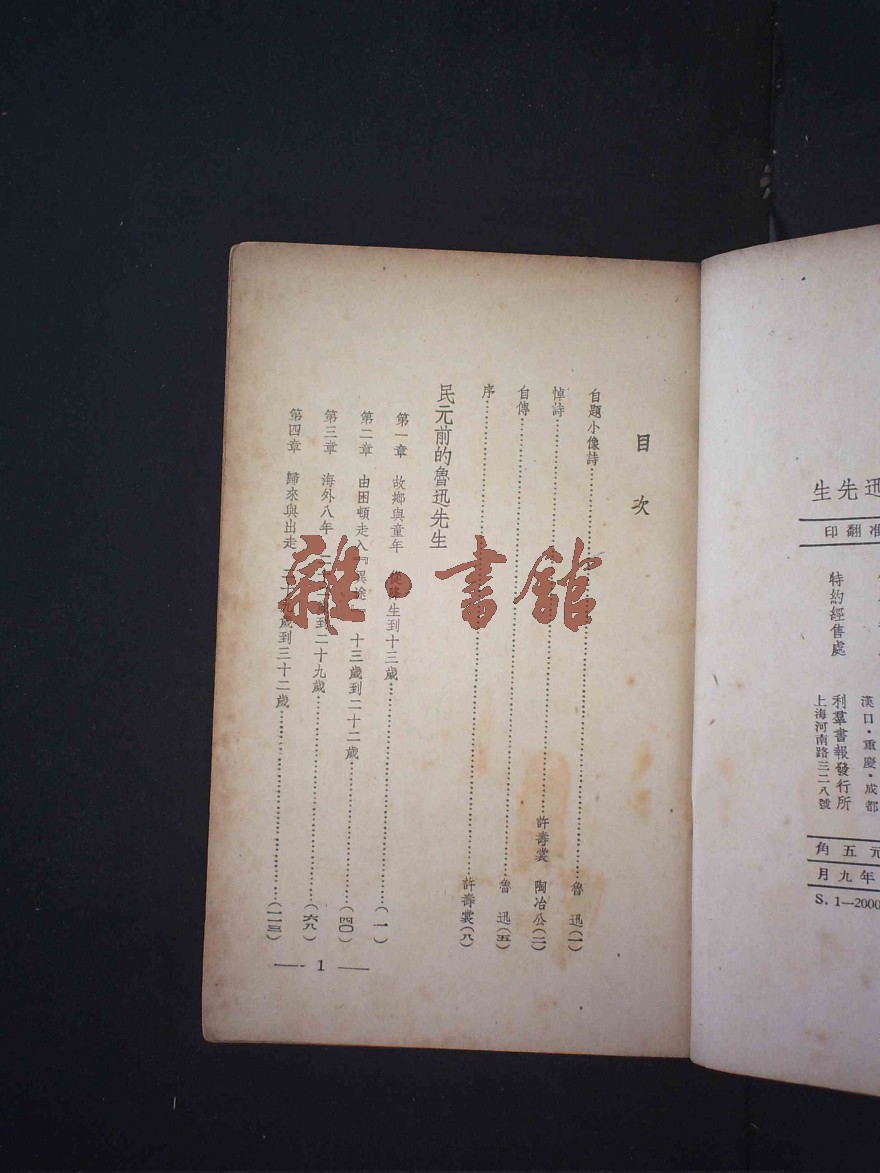 生先迅
印翻准
特約經售處
漢口・重慶・成都
利羣書報發行所
上海河南路三二八號
角五元
月九年
S. 1—2000
目次
自題小像詩……魯 迅(一)
悼詩……許壽裳 陶冶公(二)
自傳……魯 迅(五)
序……許壽裳(八)
民元前的魯迅先生
第一章 故鄉與童年 從誕生到十三歲……(一)
第二章 由困頓走入『異途』 十三歲到二十二歲……(四〇)
第三章 海外八年 到二十九歲……(六八)
第四章 歸來與出走 二十九歲到三十二歲……(一一三)
— 1 —
雜・書館